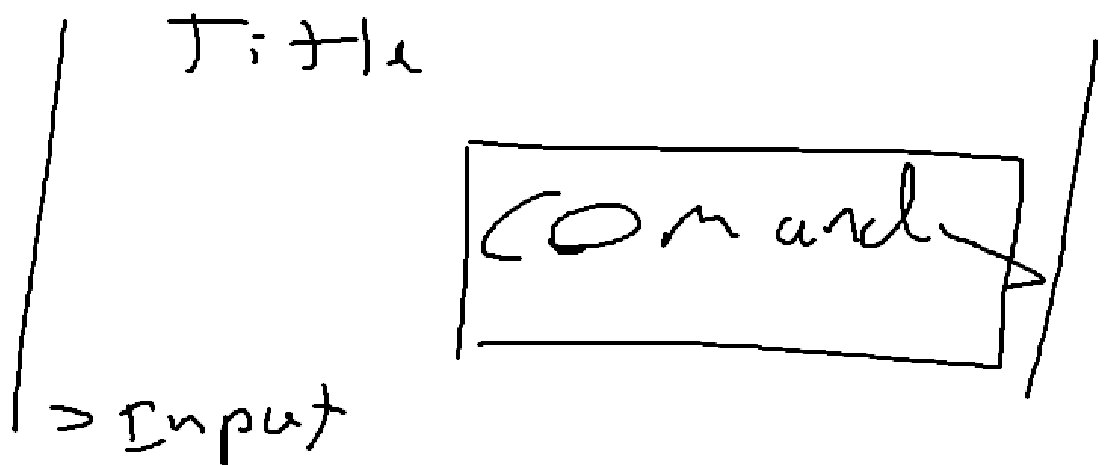 Title
Comands
> Input